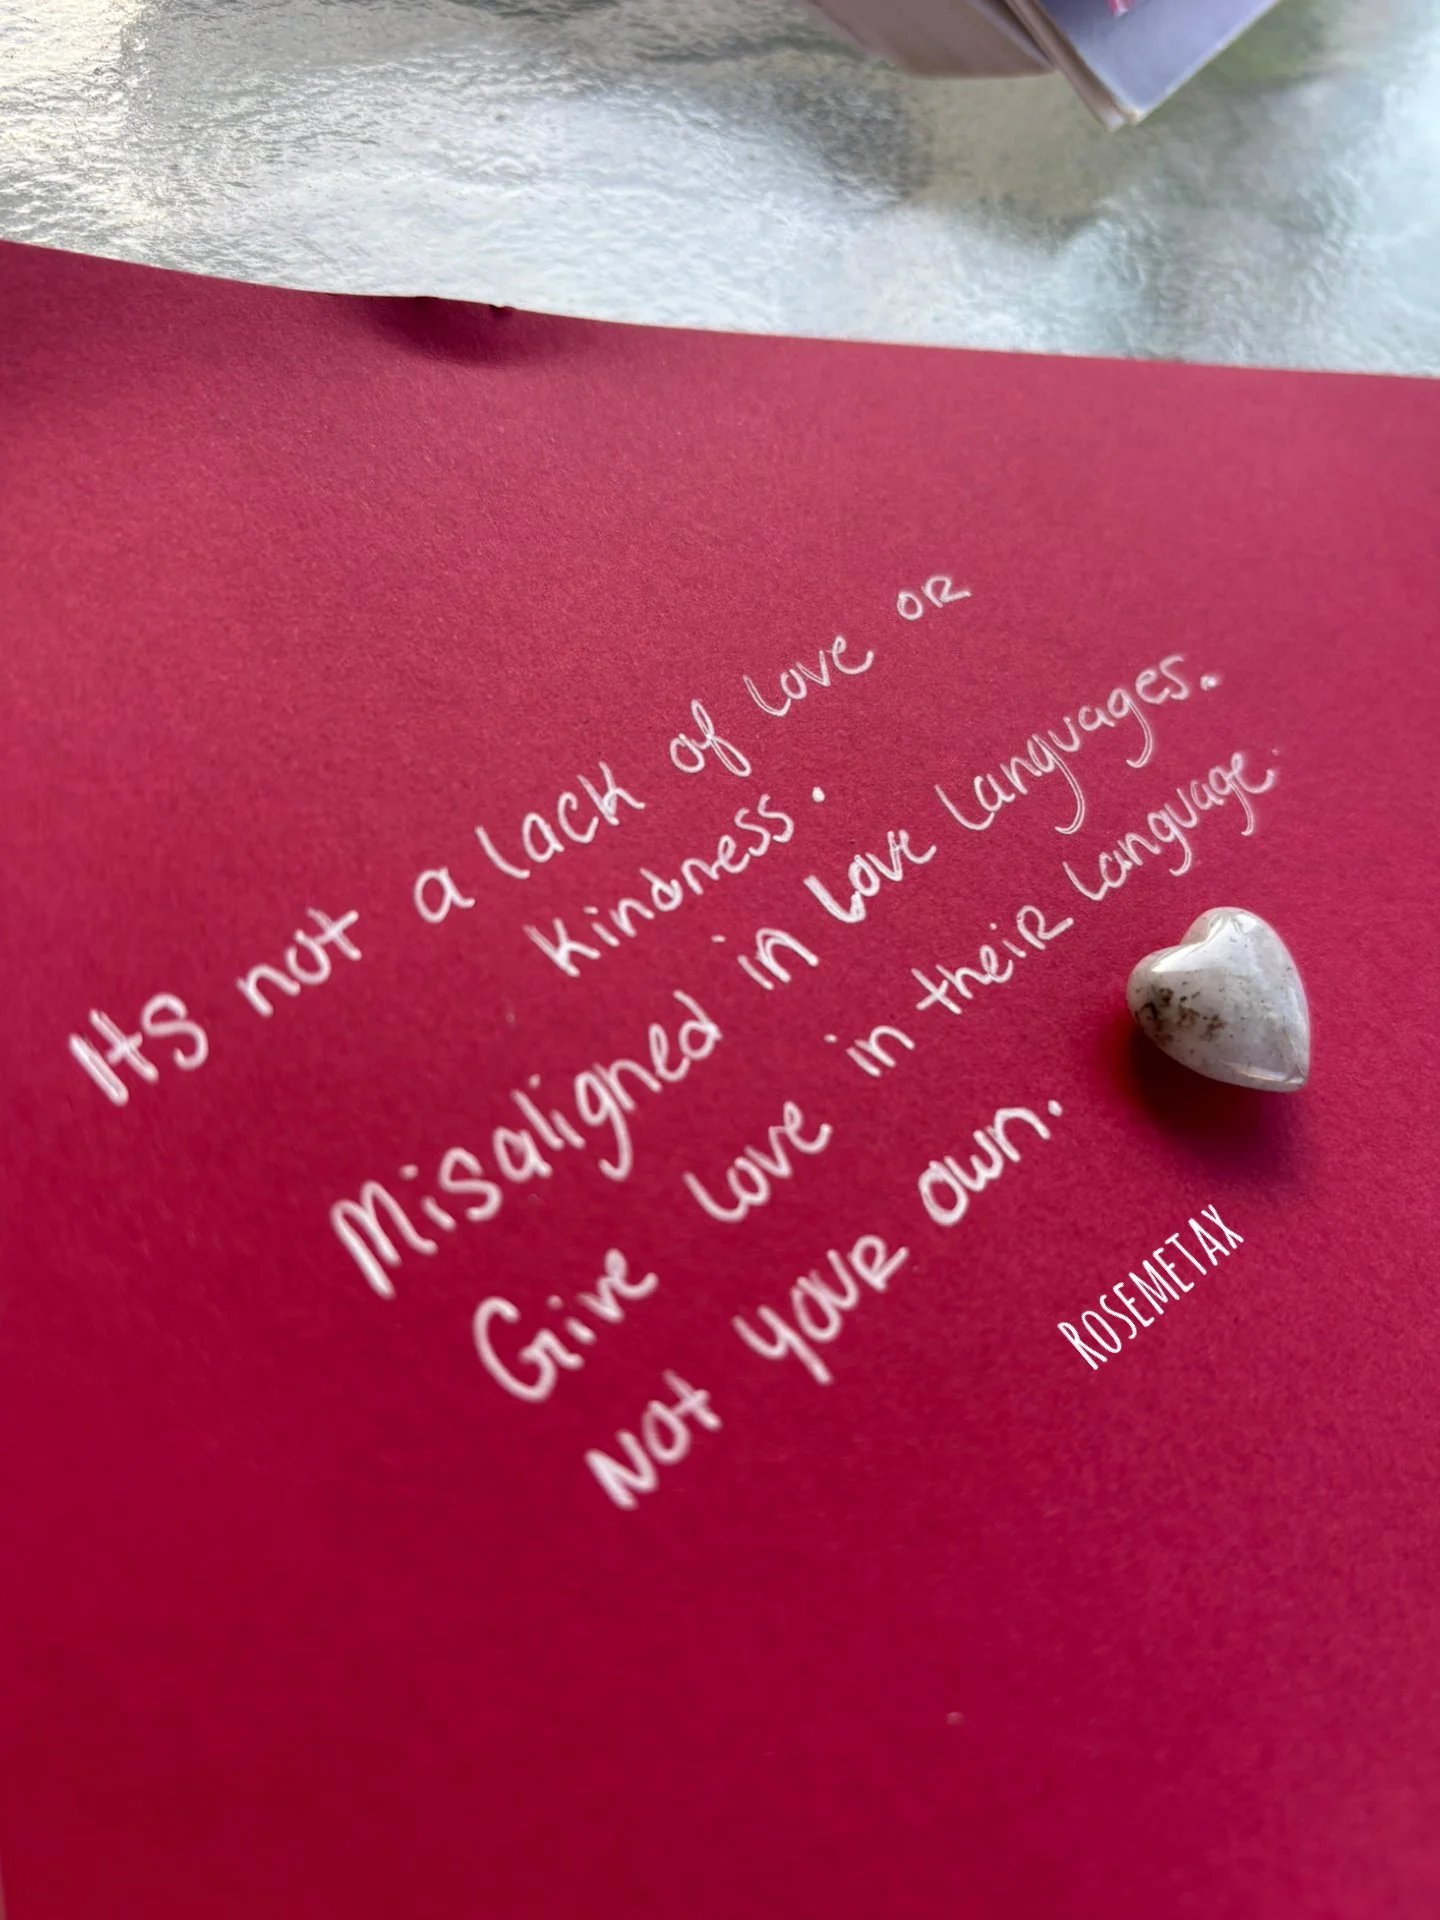 Its not a lack of love or
kindness.
Misaligned in love languages.
Give love in their language.
Not your own.
ROSEMETAX